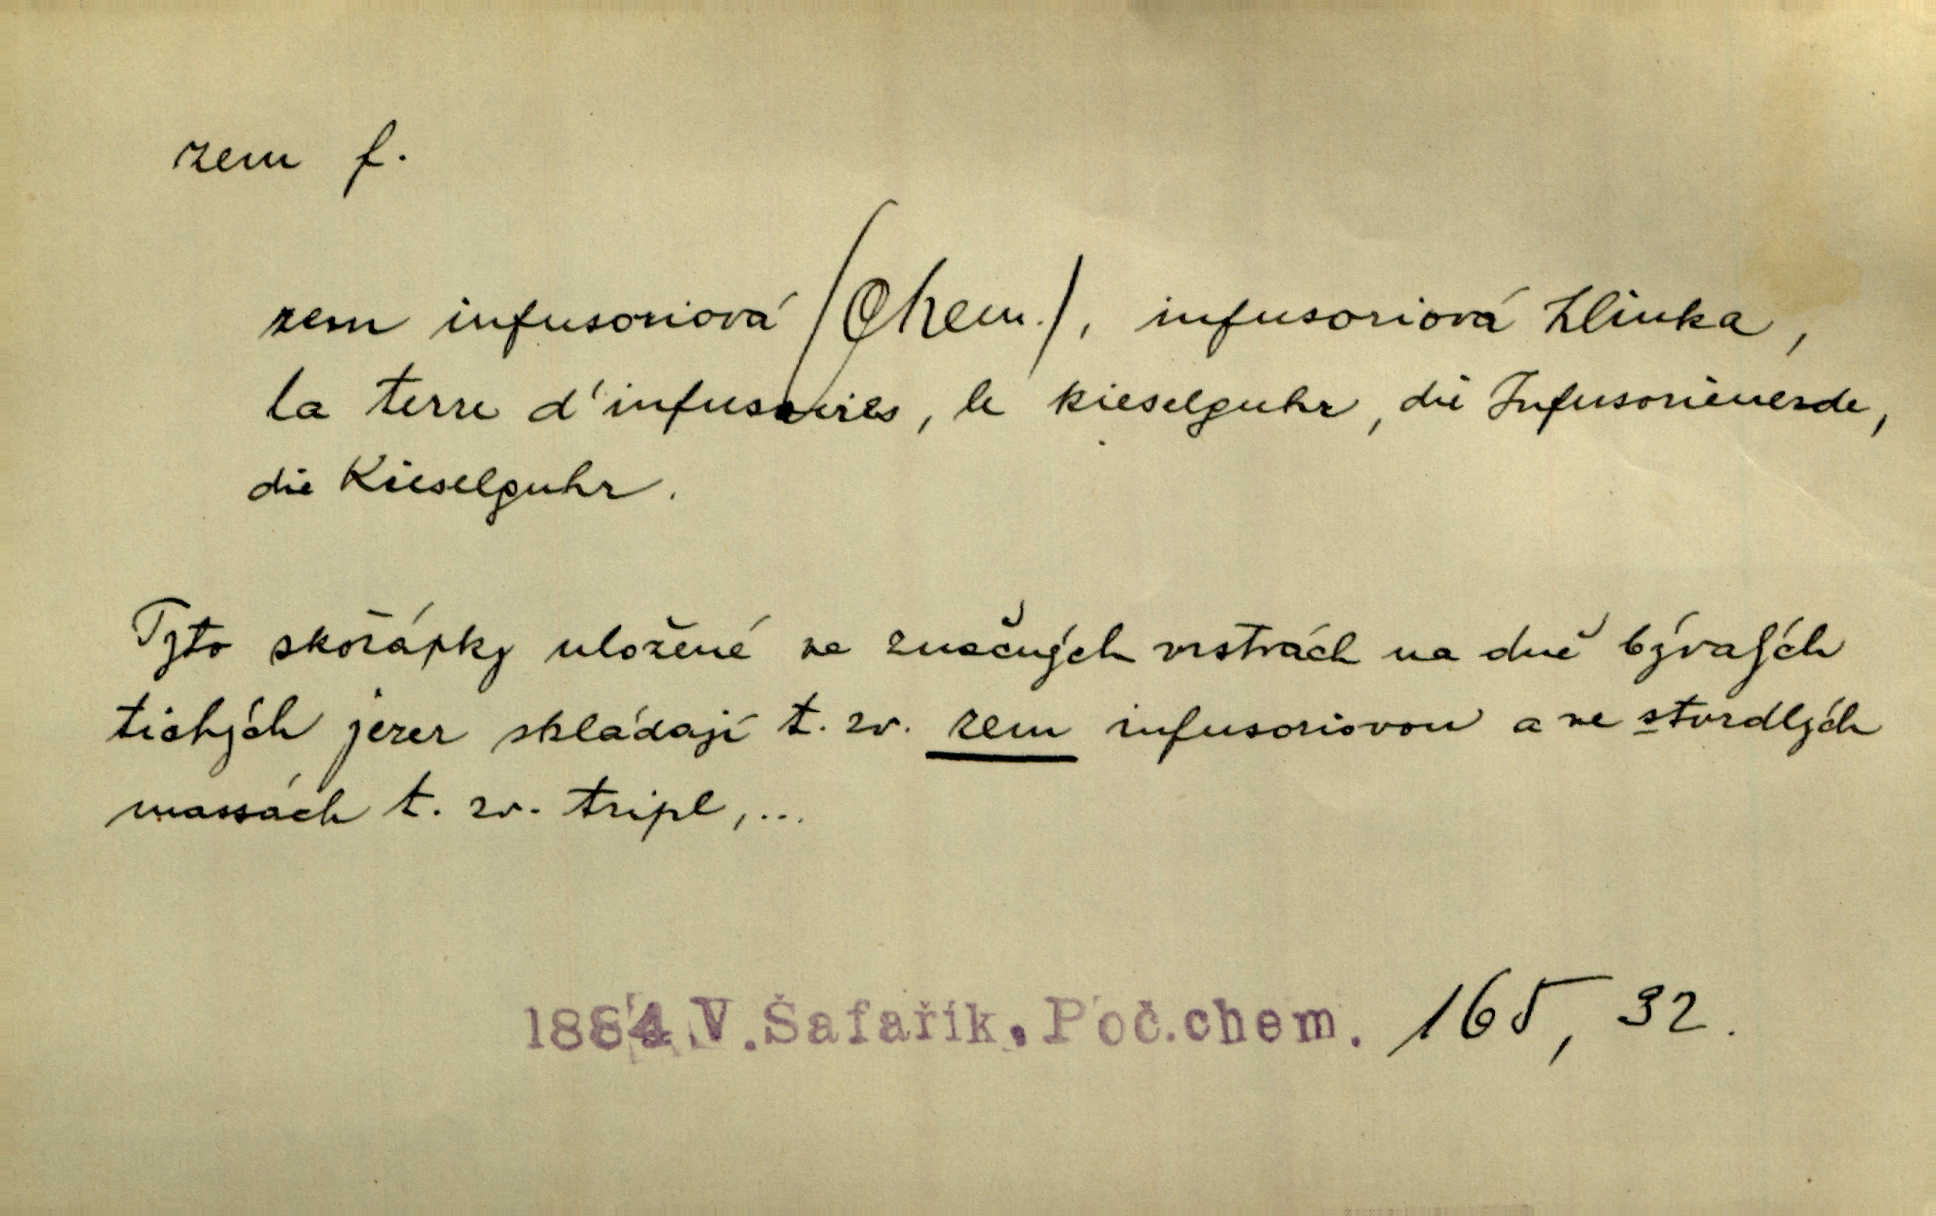 zem f.
zem infusoriová /Chem./, infusoriová hlinka,
la terre d'infusoires, le kieselguhr, die Infusorienerde,
die Kieselguhr.
Tyto skořápky uložené ve značných vrstvách na dně bývalých
tichých jezer skládají t. zv. zem infusoriovou a ve stvrdlých
massách t. zv. tripl,...
1884 V. Šafařík, Poč.chem. 165, 32.